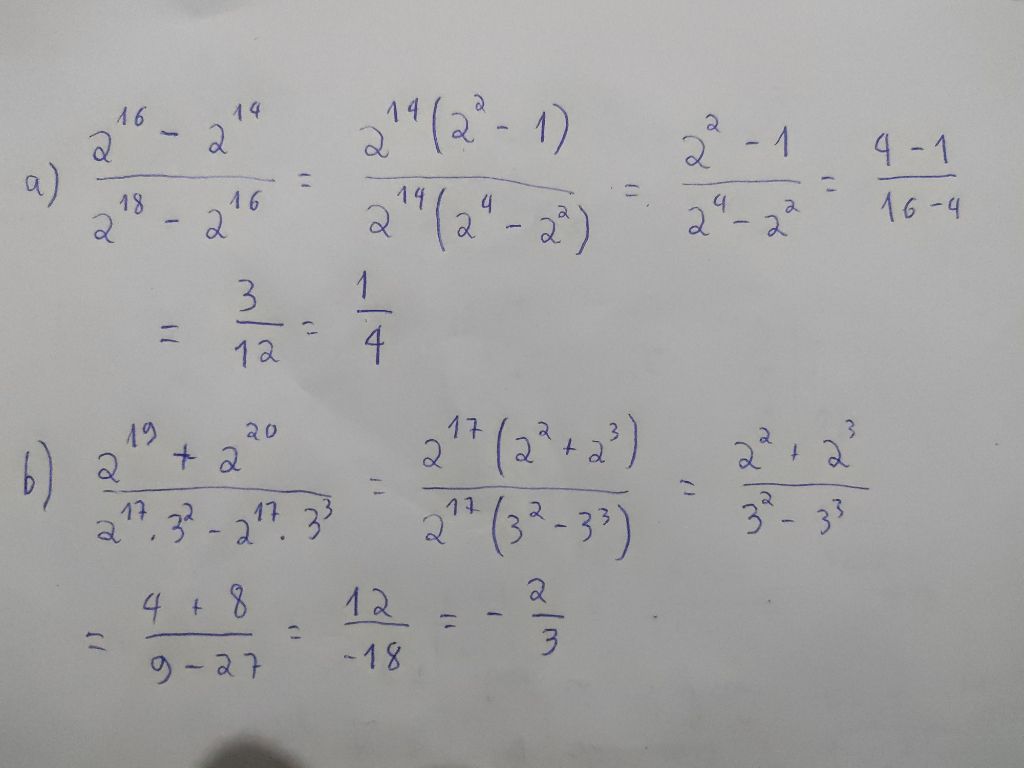 a) (2^16 - 2^14)/(2^18 - 2^16) = (2^14(2^2 - 1))/(2^14(2^4 - 2^2)) = (2^2 - 1)/(2^4 - 2^2) = (4 - 1)/(16 - 4)
= 3/12 = 1/4
b) (2^19 + 2^20)/(2^17 . 3^2 - 2^17 . 3^3) = (2^17(2^2 + 2^3))/(2^17(3^2 - 3^3)) = (2^2 + 2^3)/(3^2 - 3^3)
= (4 + 8)/(9 - 27) = 12/-18 = - 2/3